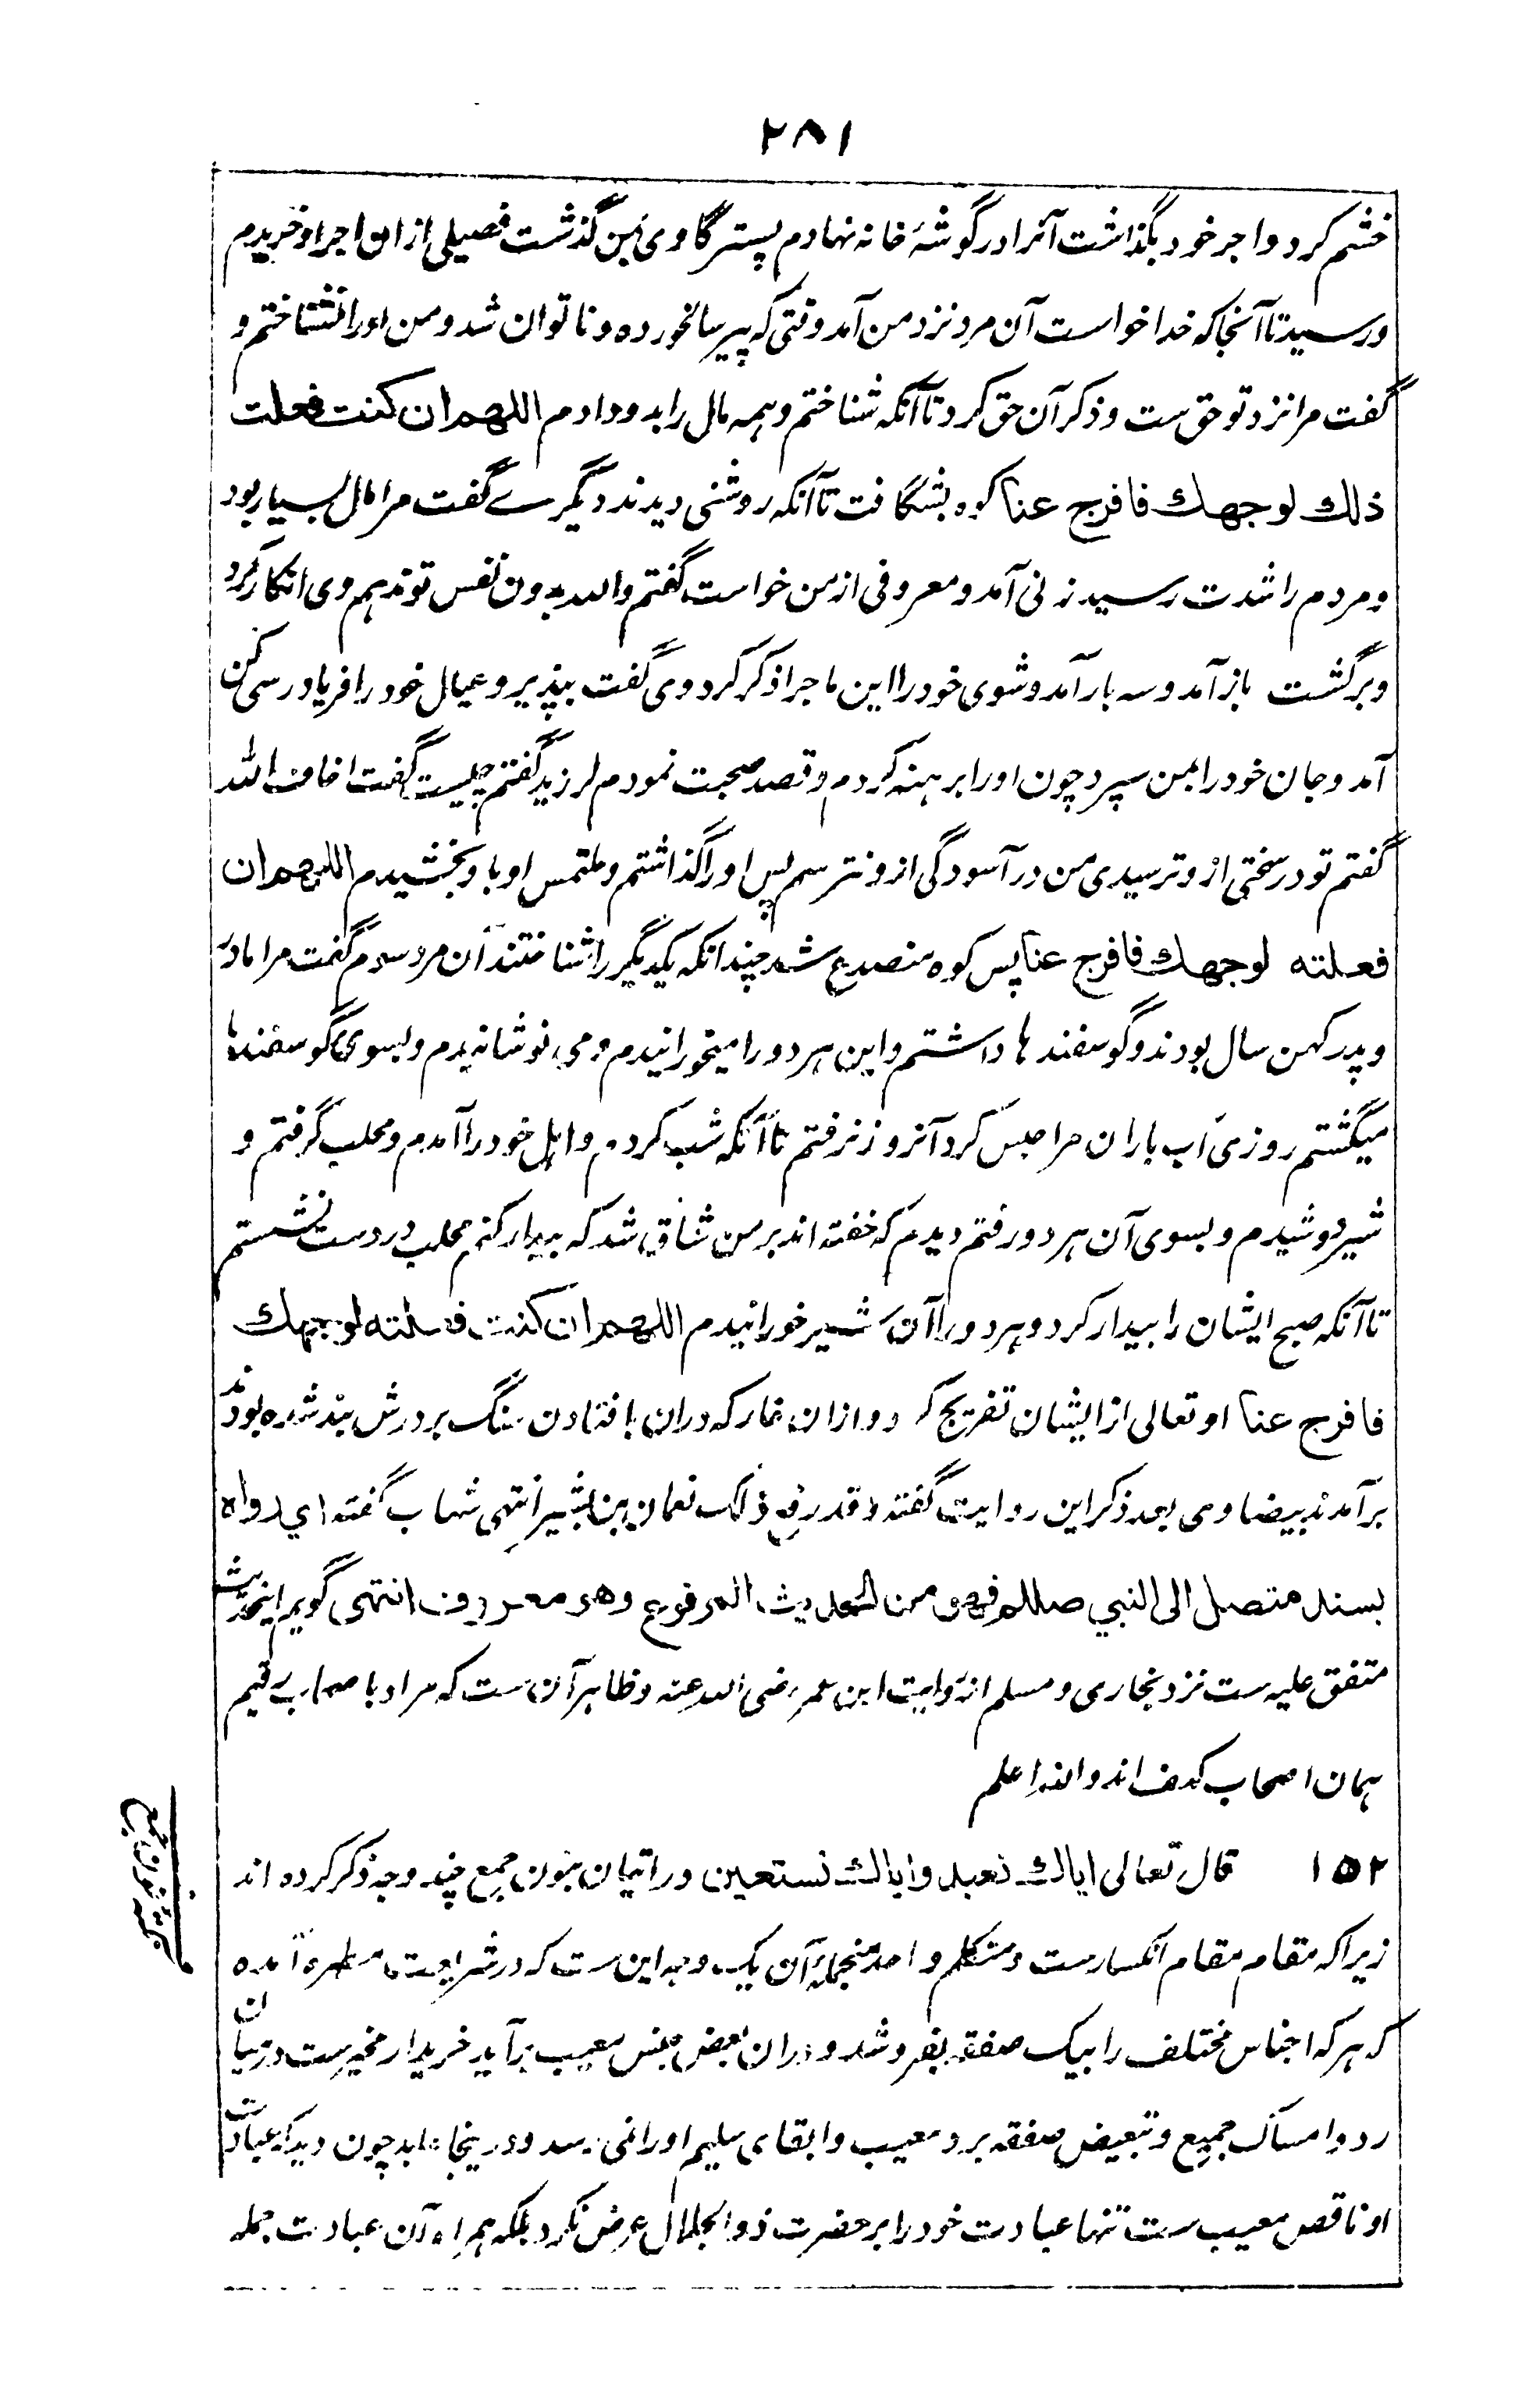 ۲۸۱
خشم کرد واجر خود بگذاشت آنرا در گوشۂ خانه نهادم پستر گاوی بمن گذشت فصیلی ازان اجر او خریدم
ورسید تا آنجا که خدا خواست آن مرد نزد من آمد وقتی که پیر سالخورده و ناتوان شد ومن اورا نشناختم و
گفت مرا نزد تو حق ست وذکر آن حق کرد تا آنکه شناختم وهمه مال را بدو دادم اللهم ان کنت فعلت
ذلك لوجهك فافرج عنا کوه بشگافت تا آنکه روشنی دیدند دیگرے گفت مرا مال بسیار بود
ومردم را شدت رسید زنی آمد ومعروفی از من خواست گفتم والله بدون نفس تو ندهم وی انکار کرد
وبرگشت بازآمد وسه بار آمد وشوی خود را این ماجرا ذکر کرد وی گفت بپذیر وعیال خود را فریادرسی کن
آمد وجان خود را بمن سپرد چون اورا برهنه کردم وقصد صحبت نمودم لرزید گفتم چیست گفت اخاف الله
گفتم تو در سختی ازو ترسیدی من در آسودگی ازو نترسم پس اورا گذاشتم وملتمس او باو بخشیدم اللهم ان
فعلته لوجهك فافرج عنا پس کوه منصدع شد چندانکه یکدیگر را شناختند آن مرد سوم گفت مرا مادر
وپدر کهن سال بودند وگوسفندها داشتم واین هر دو را میخورانیدم ومی نوشانیدم وبسوی گوسفندها
میگشتم روزی آب باران مرا حبس کرد آنروز نرفتم تا آنکه شب کردم واهل خود را آمدم ومحلب گرفتم و
شیر دوشیدم وبسوی آن هر دو رفتم دیدم که خفته اند بر من شاق شد که بیدار کنم محلب در دست نشستم
تا آنکه صبح ایشان را بیدار کرد وهر دو را آن شیر خورانیدم اللهم ان کنت فعلته لوجهك
فافرج عنا او تعالی از ایشان تفریج کرد وازان غار که دران بافتادن سنگ بر درش بند شده بودند
برآمدند بیضاوی بعد ذکر این روایت گفته وقد رفع ذلک نعمان بن بشیر انتهی شهاب گفته ای رواه
بسند متصل الی النبي صللم فهو من الحدیث المرفوع وهو معروف انتهی گویم اینحدیث
متفق علیه ست نزد بخاری ومسلم از روایت ابن عمر رضی الله عنه وظاهر آن ست که مراد باصحاب رقیم
همان اصحاب کهف اند والله اعلم
۱۵۲ قال تعالی ایاك نعبد وایاك نستعین در اتیان بنون جمع چند وجه ذکر کرده اند
زیراکه مقام مقام انکسارست ومتکلم واحد منجملۂ آن یک وجه این ست که در شریعت مطهره آمده
که هر که اجناس مختلف را بیک صفقه بفروشد ودران بعض جنس معیب برآید خریدار مخیرست درمیان
رد وامساک جمیع وتبعیض صفقه برد معیب وابقای سلیم اورا نمیرسد ودرینجا عابد چون دید که عبادت
او ناقص معیب ست تنها عبادت خود را بر حضرت ذو الجلال عرض نکرد بلکه همراه آن عبادت جمله